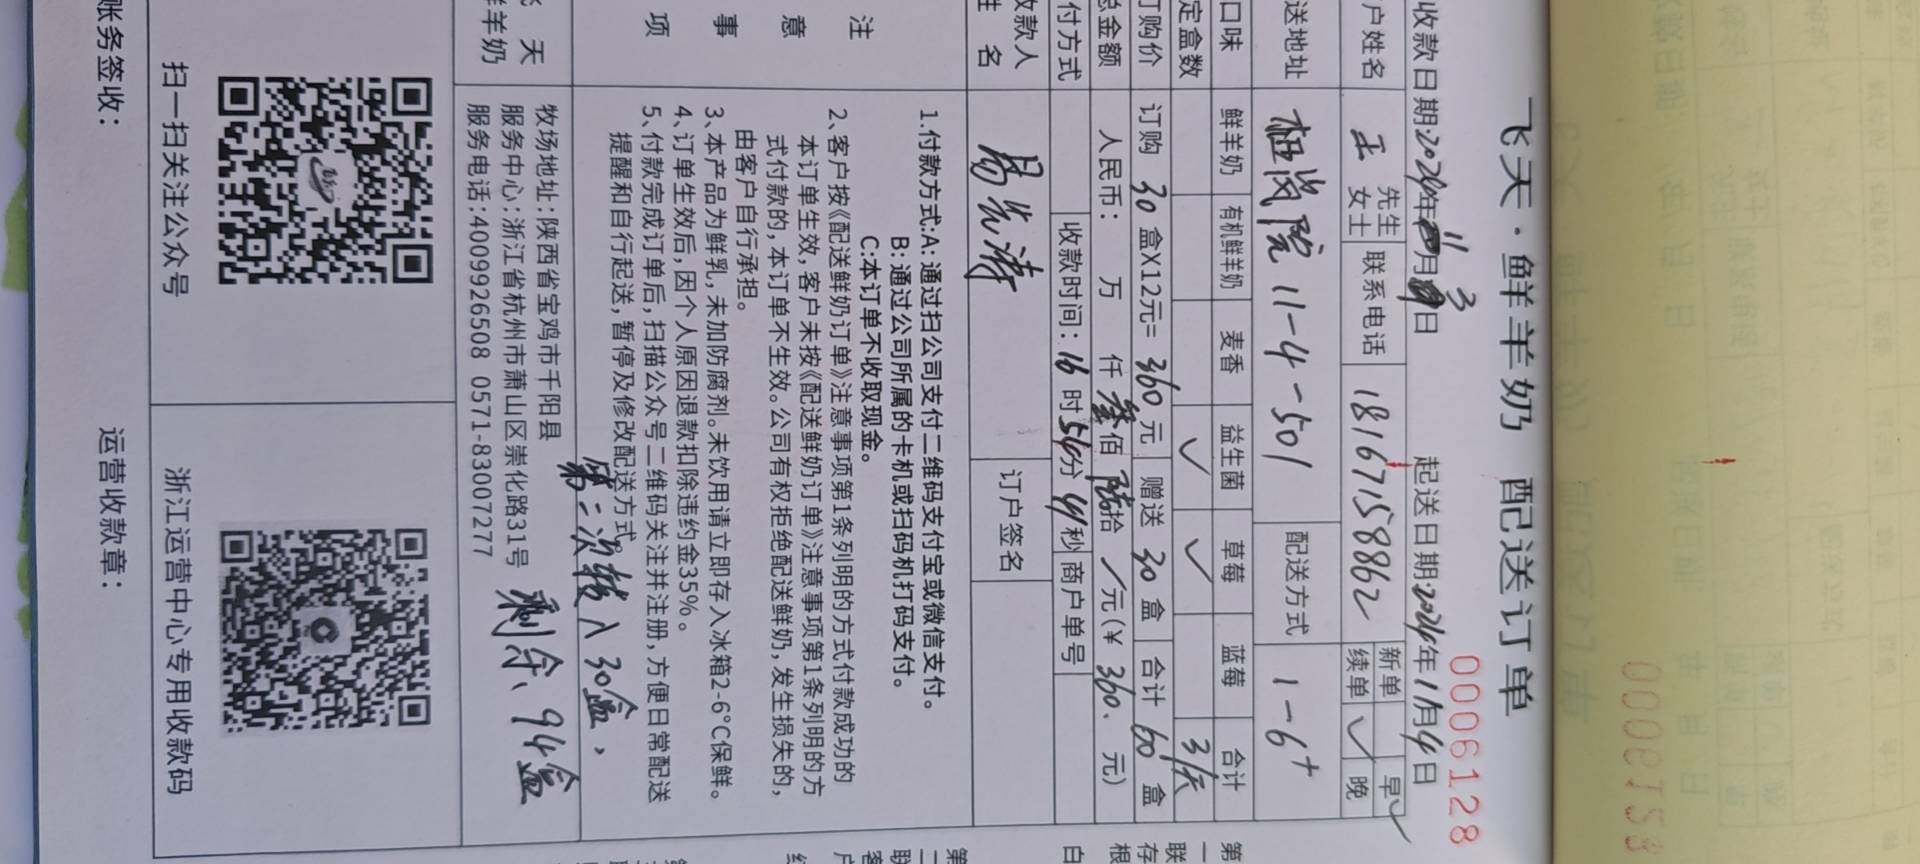 飞天·鲜羊奶 配送订单
0006128
收款日期:2024年11月3日 起送日期:2024年11月4日
户姓名 王 先生 女士 联系电话 18167158862 新单 续单 ✓ 早✓ 晚
送地址 桂岗院 11-4-501 配送方式 1-6+
口味 鲜羊奶 有机鲜羊奶 麦香 益生菌 草莓 蓝莓 合计
定盒数 ✓ ✓ 3/天
订购价 订购 30 盒X12元= 360 元 赠送 30 盒 合计 60 盒
总金额 人民币: 万 仟 叁佰 陆拾 / 元(¥ 360. 元)
付方式 收款时间: 16 时 54分 44秒 商户单号
收款人 姓 名 订户签名
注 意 事 项
1.付款方式:A:通过扫公司支付二维码支付宝或微信支付。
B:通过公司所属的卡机或扫码机打码支付。
C:本订单不收取现金。
2、客户按《配送鲜奶订单》注意事项第1条列明的方式付款成功的
本订单生效,客户未按《配送鲜奶订单》注意事项第1条列明的方
式付款的,本订单不生效。公司有权拒绝配送鲜奶,发生损失的,
由客户自行承担。
3、本产品为鲜乳,未加防腐剂。未饮用请立即存入冰箱2-6°C保鲜。
4、订单生效后,因个人原因退款扣除违约金35%。
5、付款完成订单后,扫描公众号二维码关注并注册,方便日常配送
提醒和自行起送,暂停及修改配送方式。
第二次转入30盒,
剩余94盒
天
羊奶
牧场地址:陕西省宝鸡市千阳县
服务中心:浙江省杭州市萧山区崇化路31号
服务电话:4009926508 0571-83007277
扫一扫关注公众号 浙江运营中心专用收款码
账务签收: 运营收款章:
第一联存根白